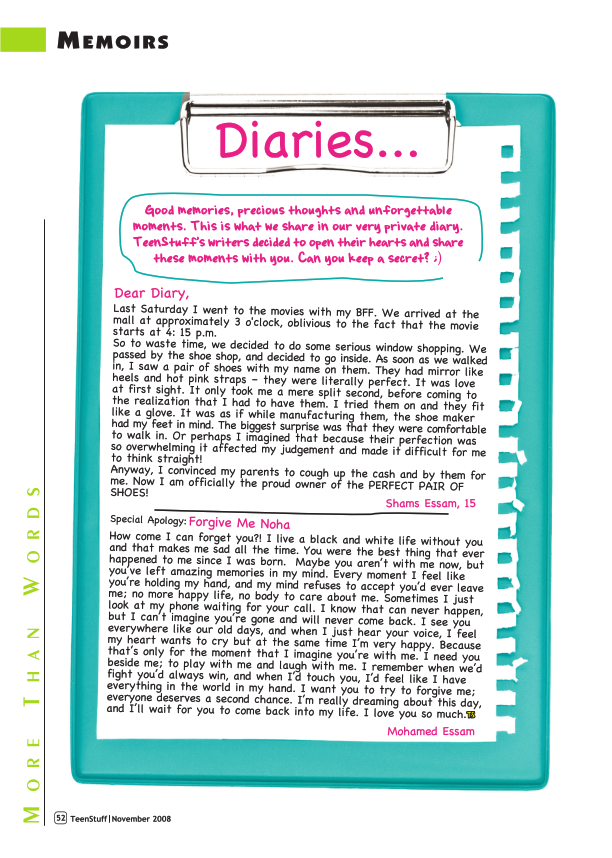 MEMOIRS
Diaries...
Good memories, precious thoughts and unforgettable
moments. This is what we share in our very private diary.
TeenStuff's writers decided to open their hearts and share
these moments with you. Can you keep a secret? ;)
Dear Diary,
Last Saturday I went to the movies with my BFF. We arrived at the
mall at approximately 3 o'clock, oblivious to the fact that the movie
starts at 4: 15 p.m.
So to waste time, we decided to do some serious window shopping. We
passed by the shoe shop, and decided to go inside. As soon as we walked
in, I saw a pair of shoes with my name on them. They had mirror like
heels and hot pink straps – they were literally perfect. It was love
at first sight. It only took me a mere split second, before coming to
the realization that I had to have them. I tried them on and they fit
like a glove. It was as if while manufacturing them, the shoe maker
had my feet in mind. The biggest surprise was that they were comfortable
to walk in. Or perhaps I imagined that because their perfection was
so overwhelming it affected my judgement and made it difficult for me
to think straight!
Anyway, I convinced my parents to cough up the cash and by them for
me. Now I am officially the proud owner of the PERFECT PAIR OF
SHOES!
Shams Essam, 15
Special Apology: Forgive Me Noha
How come I can forget you?! I live a black and white life without you
and that makes me sad all the time. You were the best thing that ever
happened to me since I was born. Maybe you aren't with me now, but
you've left amazing memories in my mind. Every moment I feel like
you're holding my hand, and my mind refuses to accept you'd ever leave
me; no more happy life, no body to care about me. Sometimes I just
look at my phone waiting for your call. I know that can never happen,
but I can't imagine you're gone and will never come back. I see you
everywhere like our old days, and when I just hear your voice, I feel
my heart wants to cry but at the same time I'm very happy. Because
that's only for the moment that I imagine you're with me. I need you
beside me; to play with me and laugh with me. I remember when we'd
fight you'd always win, and when I'd touch you, I'd feel like I have
everything in the world in my hand. I want you to try to forgive me;
everyone deserves a second chance. I'm really dreaming about this day,
and I'll wait for you to come back into my life. I love you so much.TS
Mohamed Essam
MORE THAN WORDS
52 TeenStuff|November 2008